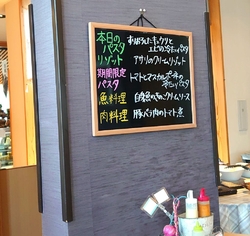 本日の
パスタ
エビの冷たいパスタ
リゾット アサリのクリームリゾット
期間限定 トマトとマスカルポーネの
パスタ 冷たいパスタ
魚料理 白身魚のきのこクリームソース
肉料理 豚バラ肉のトマト煮